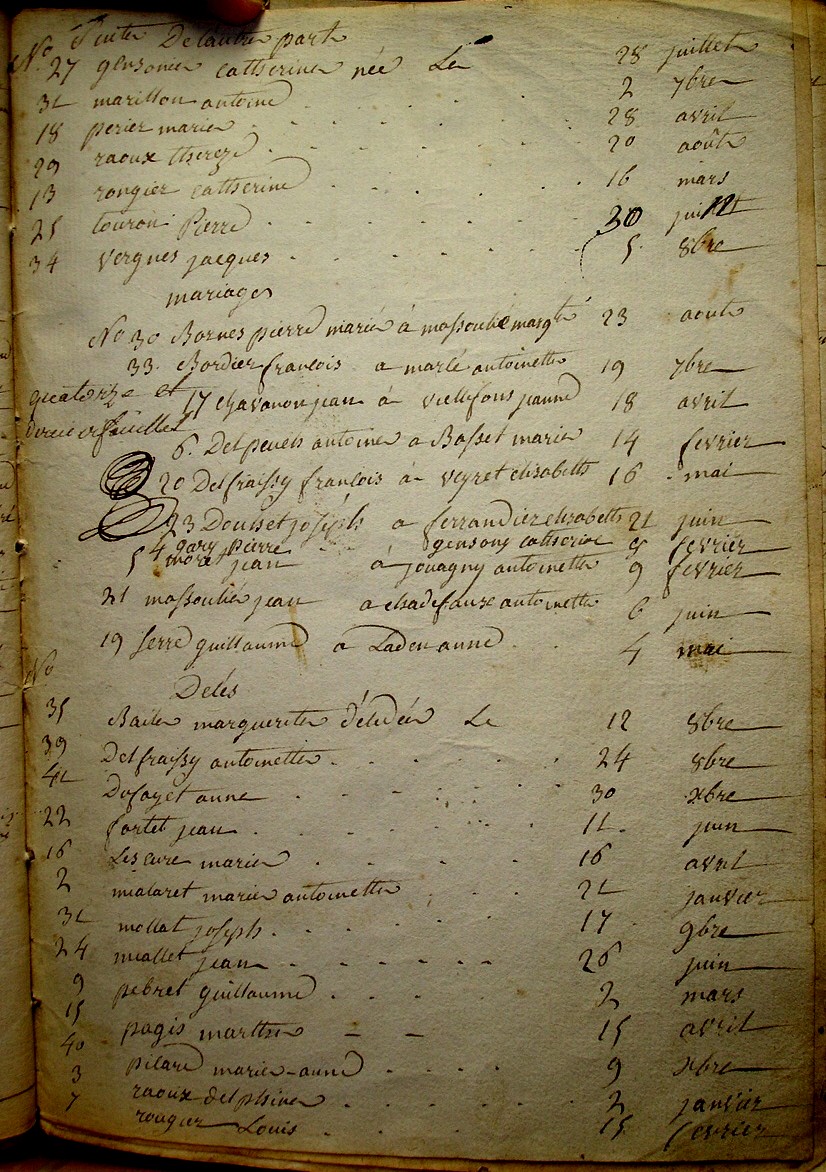 No Suite De l'autre part
27 gensonier catherine née Le 28 juillet
31 marillon antoine 2 7bre
18 perier marie 28 avril
29 raoux thereze 20 août
13 rongier catherine 16 mars
25 touron Pierre 30 juillet
34 vergnes jacques 5 8bre
mariages
No 30 Bornes pierre marié à massoulié margte 23 aout
33 Bordier francois a marlé antoinette 19 7bre
17 chavanon jean à vielfons jeanne 18 avril
quatorze et
6 Delpeuch antoine a Basset marie 14 fevrier
20 Delfraissy francois à veyret elisabeth 16 mai
23 Dousset joseph a ferrandier elisabeth 21 juin
4 gary pierre gensony catherine 9 fevrier
5 more jean à jouagny antoinette 9 fevrier
21 massoulié jean a chadefaux antoinette 6 juin
19 serre guillaume a Laden anne 4 mai
No
Delés
35 Baile marguerite délédée Le 12 8bre
39 Delfraissy antoinette 24 8bre
41 Dufayet anne 30 xbre
22 fortet jean 11 juin
16 Lescure marie 16 avril
2 mialaret marie antoinette 21 janvier
31 mollat joseph 17 9bre
24 miallet jean 26 juin
9 pebret guillaume 2 mars
15 pagis marthe 15 avril
40 pilard marie-anne 9 xbre
3 raoux delphine 2 janvier
7 rougier Louis 15 fevrier